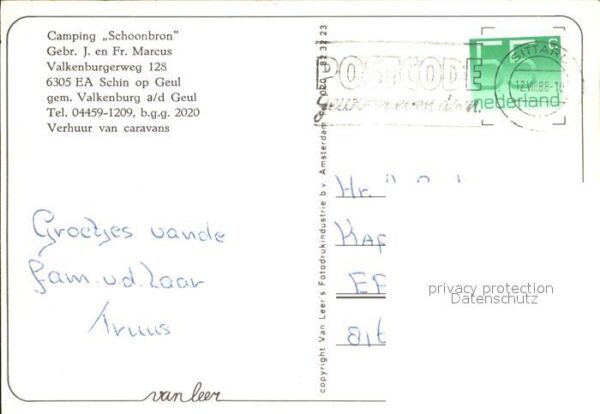 Camping „Schoonbron"
Gebr. J. en Fr. Marcus
Valkenburgerweg 128
6305 EA Schin op Geul
gem. Valkenburg a/d Geul
Tel. 04459-1209, b.g.g. 2020
Verhuur van caravans
Groetjes vande
fam. v.d. Laar
Truus
van leer
copyright Van Leer's Fotodrukindustrie b.v. Amsterdam
POSTCODE
55 c
nederland
SITTARD
12.VIII.88
Hr.
Kap
privacy protection
Datenschutz